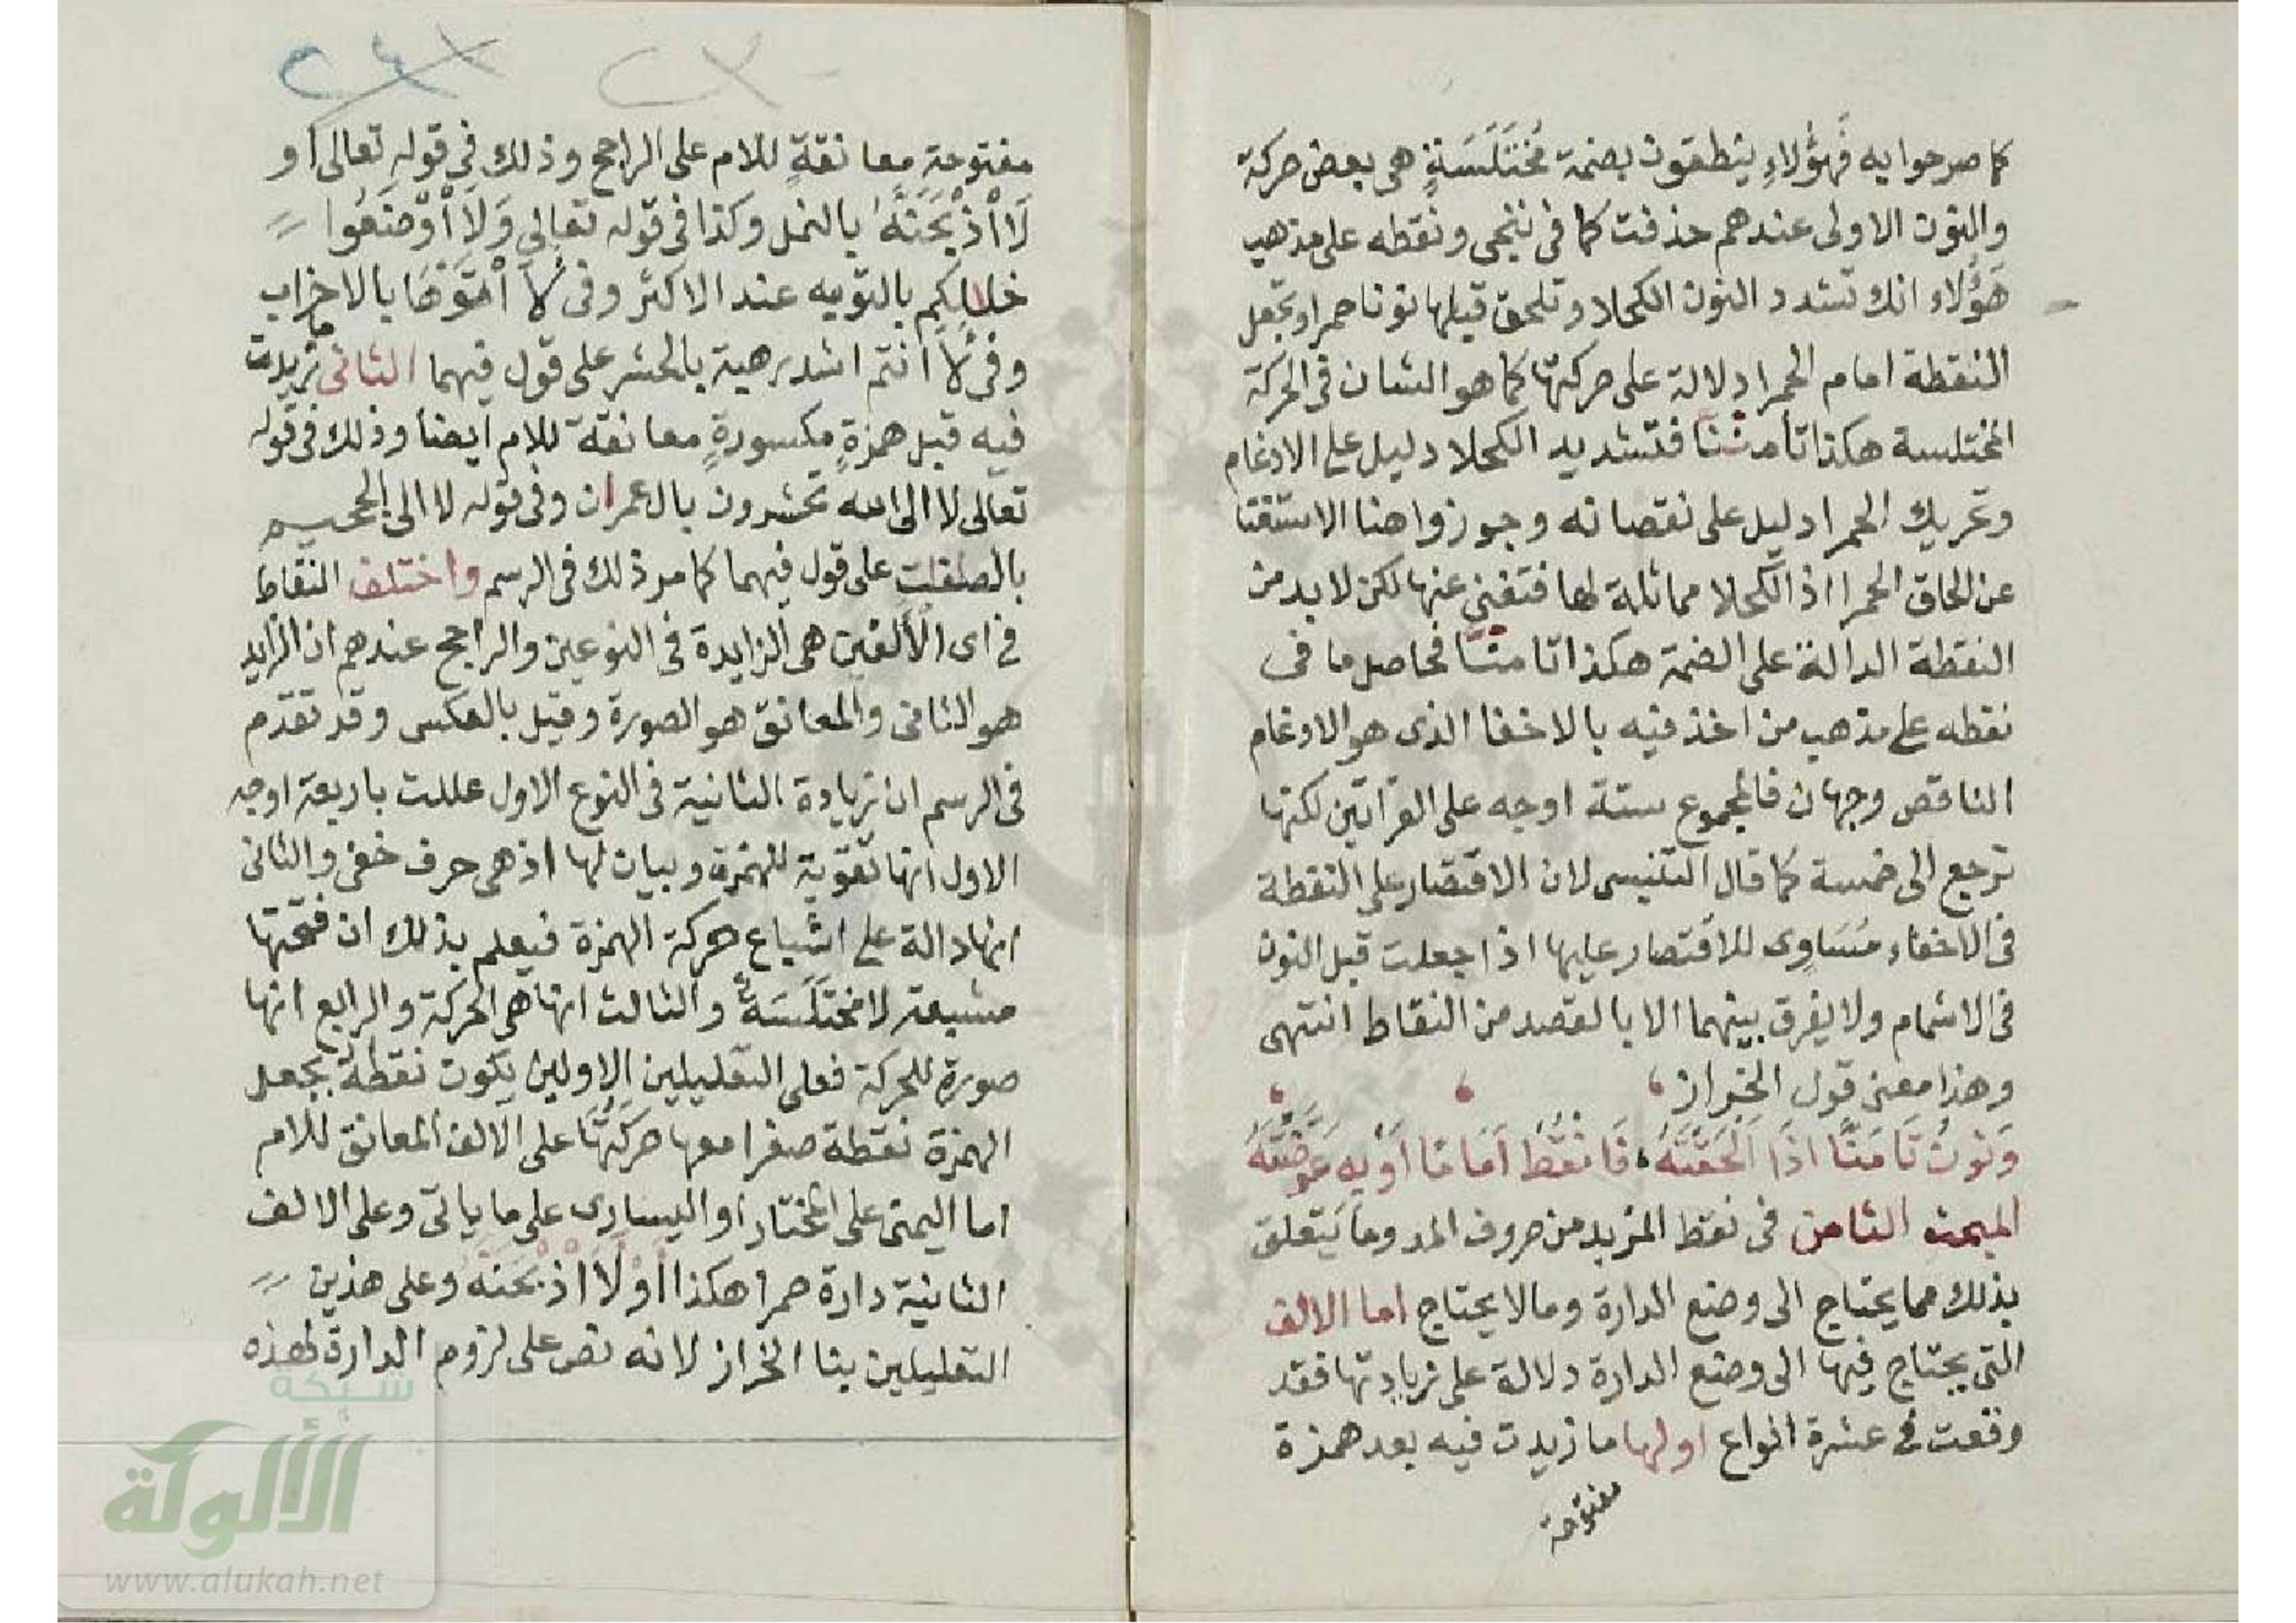 كما صرحوا به فهؤلاءِ ينطقون بضمة مُختَلَسَةٍ هى بعض حركة
والنون الاولى عندهم حذفت كما فى ننجى ونقطه على مذهب
هَؤُلاء انك تشدد النون الكحلا وتلحق قبلها نونا حمرا وتجعل
النقطة امام الحمرا دلالة على حركتها كما هو الشان فى الحركة
المختلسة هكذا تأمنننا فتشديد الكحلا دليل على الادغام
وتحريك الحمرا دليل على نقصانه وجوزوا هنا الاستغنا
عن الحاق الحمرا اذ الكحلا مماثلة لها فتغنى عنها لكن لا بد من
النقطة الدالة على الضمة هكذا تامنّا فحاصل ما فى
نقطه على مذهب من اخذ فيه بالاخفا الذى هو الادغام
الناقص وجهان فالمجموع ستة اوجه على القرآتين لكنها
ترجع الى خمسة كما قال التنيسى لان الاقتصار على النقطة
فى الاخفاء مُسَاوِى للاقتصار عليها اذا جعلت قبل النون
فى الاشمام ولا يفرق بينهما الا بالقصد من النقاط انتهى
وهذا معنى قول الخراز
وَنُونُ تَامَنَّا اذَا اَلْحَقْتَهُ فَانْقُطْ اَمَامًا اَوْ بِهِ عَوَّضْتَهُ
المبحث الثامن فى نقط المزيد من حروف المد وما يتعلق
بذلك مما يحتاج الى وضع الدارة ومالا يحتاج اما الالف
التى يحتاج فيها الى وضع الدارة دلالة على زيادتها فقد
وقعت فى عشرة انواع اولها ما زيدت فيه بعد همزة
مفتوحة
مفتوحة معانقةٍ للام على الراجح وذلك فى قوله تعالى او
لَا اْذْبَحَنَّهُ بالنمل وكذا فى قوله تعالى وَلَا اْوْضَعُوا
خلالكم بالتوبه عند الاكثر وفى لأَاْتَوْهَا بالاحزاب
وفى لَأاْنتم اشد رهبة بالحشر على قول فيهما الثانى ما زيدت
فيه قبل همزةٍ مكسورةٍ معانقة للام ايضا وذلك فى قوله
تعالى لا الى الله تحشرون بال عمران وفى قوله لا الى الجحيم
بالصفت على قول فيهما كما مر ذلك فى الرسم واختلف النقاط
فى اى الألفين هى الزايدة فى النوعين والراجح عندهم ان الزايد
هو الثانى والمعانق هو الصورة وقيل بالعكس وقد تقدم
فى الرسم ان زيادة الثانية فى النوع الاول عللت باربعة اوجه
الاول انها تقوية للهمزة وبيان لها اذ هى حرف خفى والثانى
انها دالة على اشباع حركة الهمزة فيعلم بذلك ان فتحتها
مشبعة لا مختَلَسَةٌ والثالث انها هى الحركة والرابع انها
صورة للحركة فعلى التعليلين الاولين يكون نقطهُ بجعل
الهمزة نقطة صفرا معها حَرَكَتُهَا على الالف المعانق للام
اما اليمنى على المختار او اليسارى على ما ياتى وعلى الالف
الثانية دارة حمرا هكذا أَوْلَأاْذْبَحَنَّهُ وعلى هذين
التعليلين بنا الخراز لانه نص على لزوم الدارة لهذه
شبكة
الألوكة
www.alukah.net